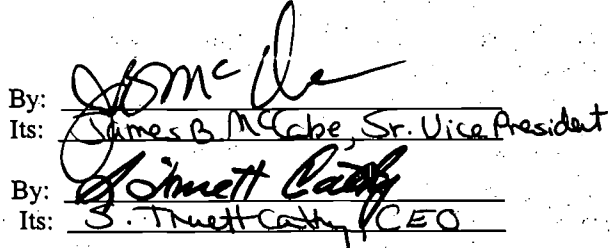 By: JB McCabe
Its: James B. McCabe, Sr. Vice President
By: S. Truett Cathy
Its: S. Truett Cathy, CEO